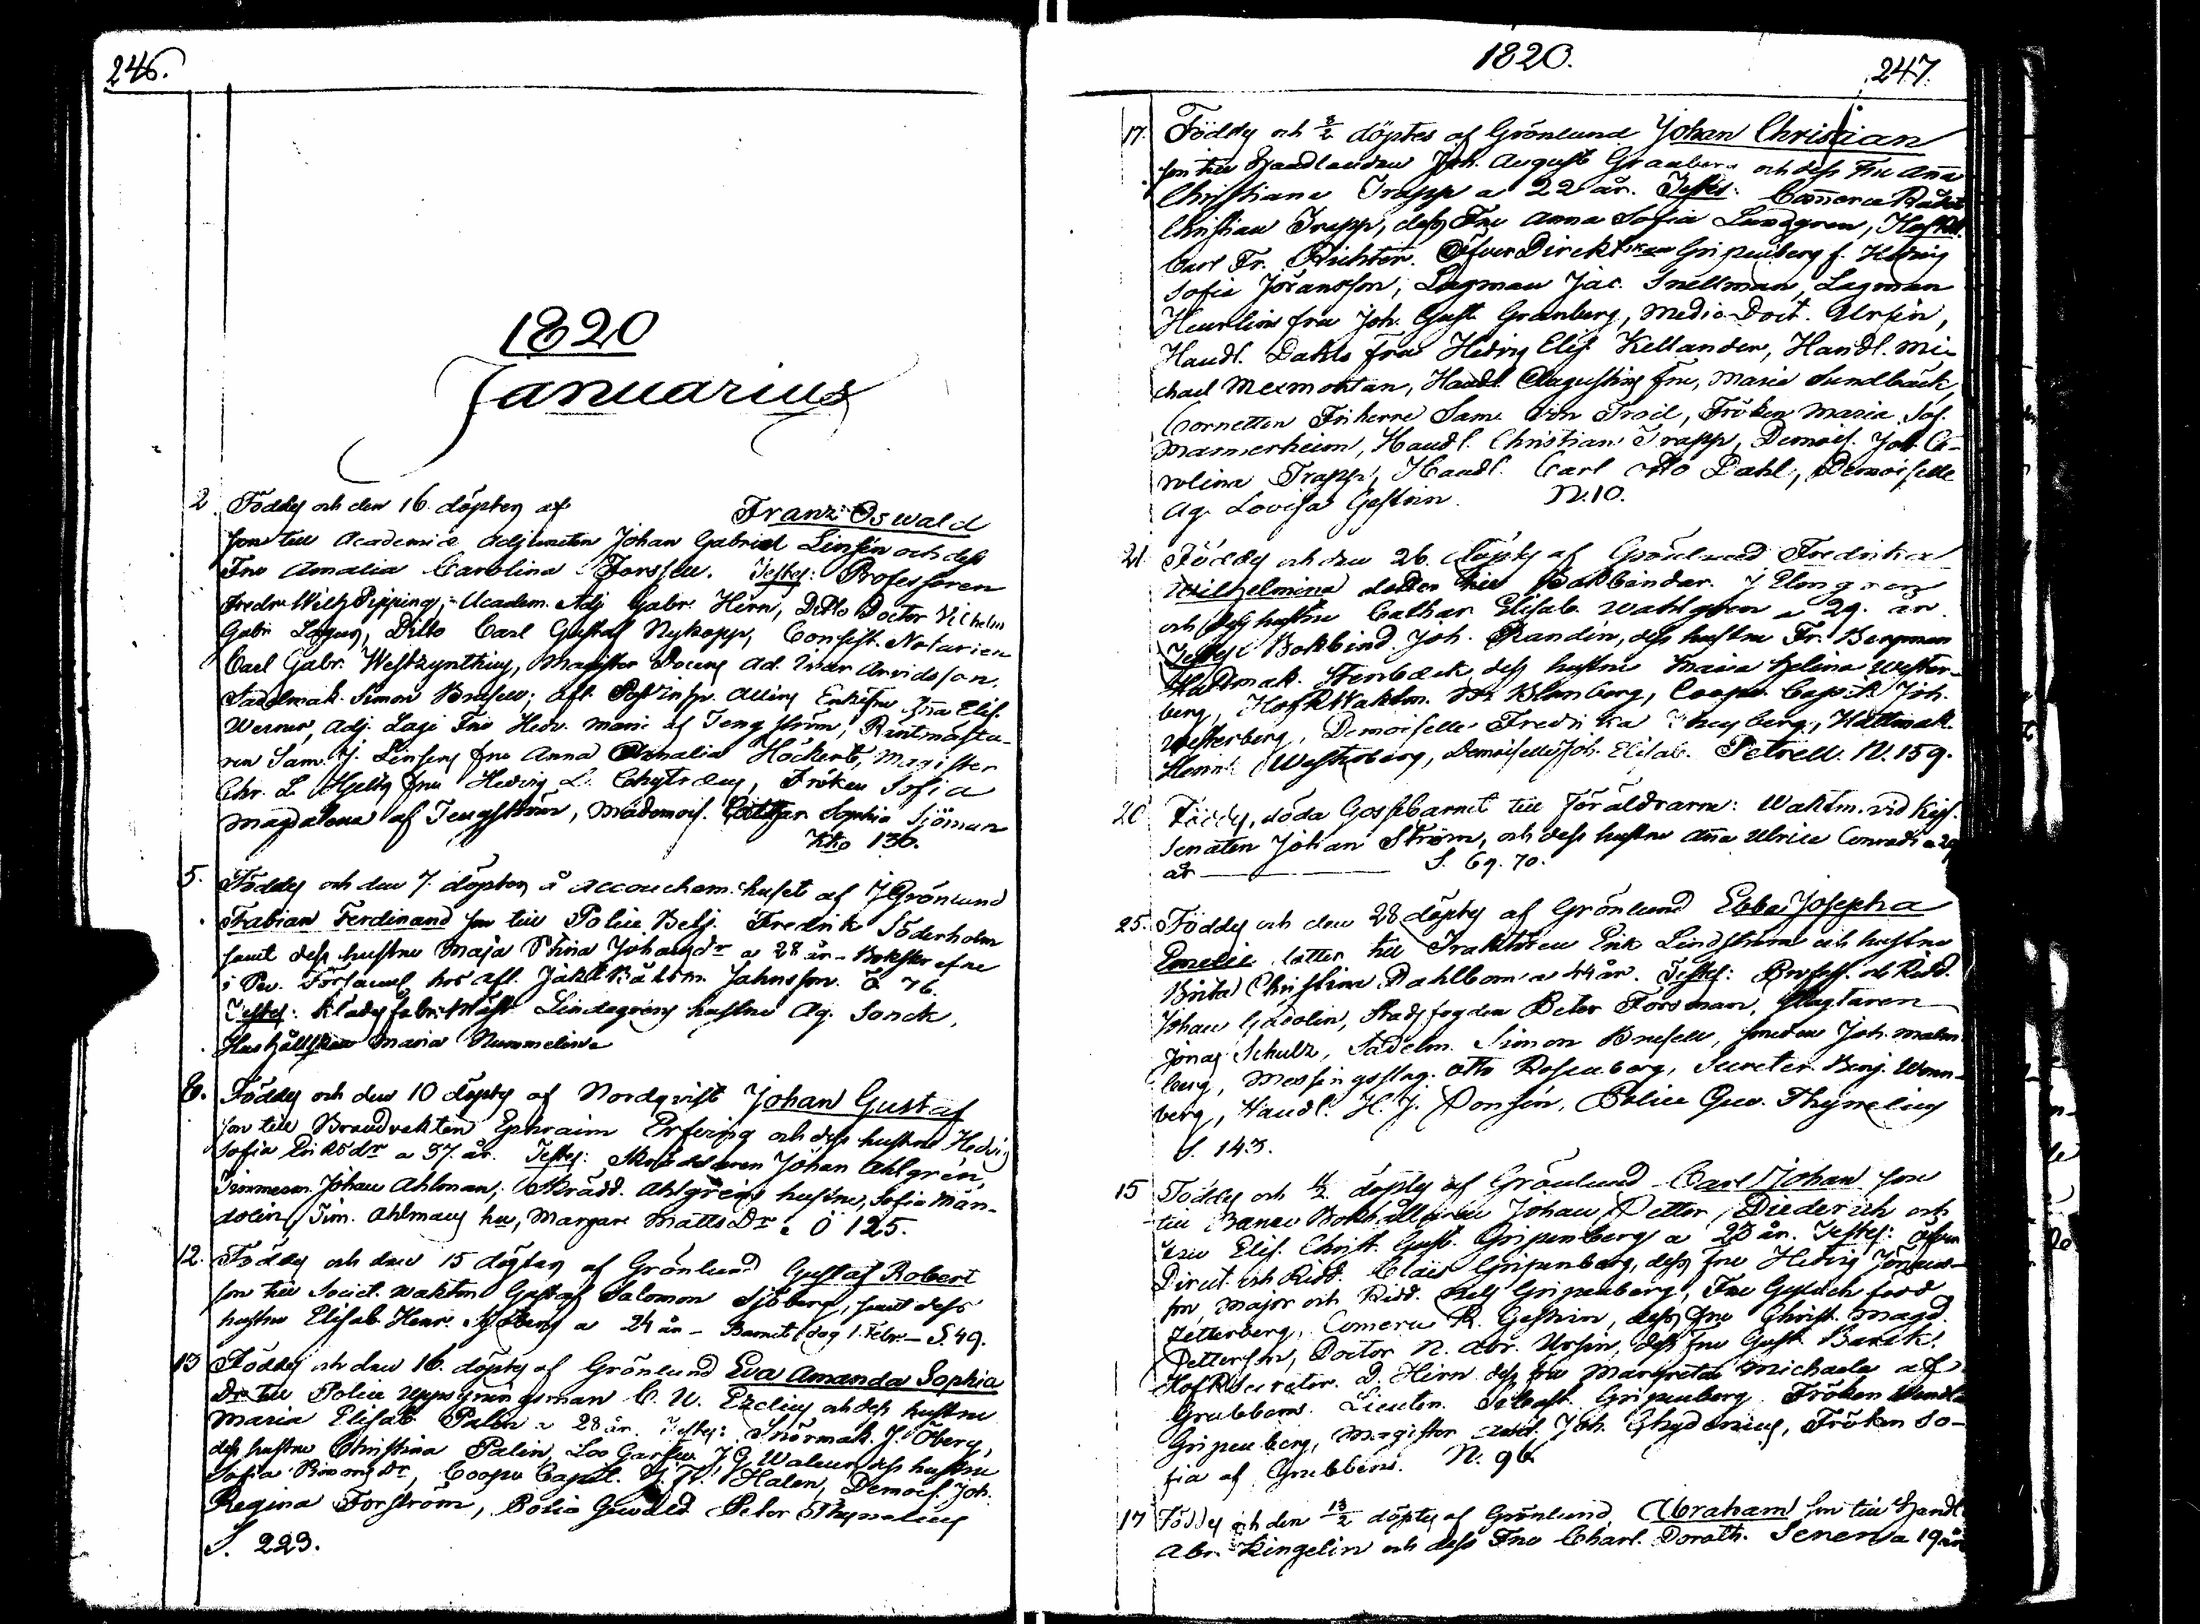 246.
1820
Januarius
2. Föddes och den 16. döptes af Franz Oswald
son till Academie Adjuncten Johan Gabriel Linsén och dess
Fru Amalia Carolina Forssell. Testes: Professoren
Fredr. Wilh. Pipping, Academ. Adj Gabr. Hirn, Ditto Doctor Vilhelm
Gabr Lagus, Ditto Carl Gustaf Nykopp, Consist. Notarien
Carl Gabr. Westzynthius, Magister Docens Ad. Ivar Arvidsson,
Sadelmak. Simon Brusell; Afl. Enkefru Elis.
Werner, Adj. Lagi Fru Hedv. Maria af Tengström, Räntmästa-
ren Sam. J. Linsens fru Anna Amalia Höckert, Magister
Chr. L. Hjelts fru Hedvig L. Chytræus, Fröken Sofia
Magdalena af Tengström, Mademois. Cathar. Sophia Sjöman
Kko 130.
5. Föddes och den 7. döptes å Accouchem. huset af J Grönlund
Fabian Ferdinand son till Police Betj. Fredrik Söderholm
samt dess hustru Maja Stina Johansdr a 28 år
i Församl hos afl. Jahnsson. Ö 76.
Testes: Klädesfabr. Mäst. Lindegrens hustru Ag. Sonck,
Hushållskan Maria Nummelin
6. Föddes och den 10 döptes af Nordqvist Johan Gustaf
son till Brandvakten Ephraim Erfving och dess hustru Hedvig
Sofia Eriksdr a 37 år. Testes: Skräddaren Johan Ahlgrén,
Timmerm. Johan Ahlman, Skrädd. Ahlgréns hustru, Sofia Män-
dolin, Tim. Ahlmans hu, Margar. Matts Dr. Ö 125.
12. Föddes och den 15 döptes af Grönlund Gustaf Robert
son till Societ. waktm Gustaf Salomon Sjöberg, samt dess
hustru Elisab Henr. Sjöberg a 24 år – Barnet dog 1. Febr – S. 49.
13 Föddes och den 16. döptes af Grönlund Eva Amanda Sophia
Dr till Police Uppsyningsman C. U. Ezelius och dess hustru
Maria Elisab Palin a 28 år. Testes: Snörmak. J. Öberg,
dess hustru Christina Palin, J G Walen dess hustru
Sofia Coopv. Capit. Halen, Demois. Joh.
Regina Forström, Police Gevald. Peter Thynelius
S. 223.
1820.
247.
17. Föddes och 3/2 döptes af Grönlund Johan Christian
son till Handlanden Joh. August Granberg och dess Fru Anna
Christiana Trapp a 22 år. Testes: Commerce Rådet
Christian Trapp, dess Fru Anna Sofia Lundgren,
Carl Fr. Richter. ÖfverDirektskan Gripenberg f. Hedvig
Sofia Jöransson, Lagman Jac. Snellman, Lagman
Heurlins fru Joh. Gust. Granberg, Medic. Doct. Ursin,
Handl. Dahls fru Hedvig Elis. Kellander, Handl. Mi-
chael Mexmontan, Handl. Augustins fru, Maria Sundbäck,
Cornetten Friherre Sam. von Troil, Fröken Maria Sof.
Mannerheim, Handl. Christian Trapp, Demois. Joh. Ca-
rolina Trapp, Handl. Carl Otto Dahl, Demoiselle
Ag. Lovisa Gestrin. N. 10.
21 Föddes och den 26. döptes af Grönlund Fredrika
Wilhelmina dotter till Bokbindar. J Elmgren
och dess hustru Cathar. Elisab. Wahlgren a 29. år.
Testes: Bokbind. Joh. Randin, dess hustru Fr. Bergman
Hattmak. Stenbäck dess hustru Maria Helena Wester-
berg, HofR Waktm. Blomberg, Coopv. Capit. Joh.
Westerberg, Demoiselle Fredrika Hattmak.
Henr. Westerberg, Demoiselle Joh. Elisab. Petrell. N. 159.
20 Föddes, döda Gossebarnet till föräldrarna: Waktm. vid Kejs.
Senaten Johan Ström, och dess hustru Anna Ulrica Conradi a 29
år S. 69. 70.
25. Föddes och den 28 döptes af Grönlund Ebba Josepha
Emelie dotter till Traktören Erik Lindström och hustru
Brita Christina Dahlbom a 44 år. Testes: Profess. och Ridd.
Johan Gadolin, Stadsfogden Peter Forsman, Slagtaren
Jonas Schulz, Sadelm. Simon Brusell, smeden Joh. Malm-
berg, Messingsslag. Otto Rosenberg, Secreter. Benj. Wenn-
berg, Handl. H. J. Ponsin, Police Gev. Thynelius
S. 143.
15 Föddes och 11/2 döptes af Grönlund Carl Johan son
till Banco Bokhållaren Johan Petter Diederich och
fru Elis. Christ. Gust. Gripenberg a 25 år. Testes: Öfver
Direct. och Ridd. Claes Gripenberg, dess fru Hedvig Jörans-
son, Major och Ridd. Gripenberg, Fru född
Zetterberg, Comerce R. Gestrin, dess fru Christ. Magd.
Petterson, Doctor N. Abr. Ursin, dess fru Gust. Banck,
HofR Secreter. D. Hirn dess fru Margreta Michaela af
Grubbens. Lieuten. Sebast. Gripenberg. Fröken Wendla
Gripenberg, Magister Joh. Chydenius, Fröken So-
fia af Grubbens. N. 96
17 Föddes och den 13/2 döptes af Grönlund, Abraham son till Handl
Abr. Kingelin och dess Fru Charl. Doroth. Seneca 19 år